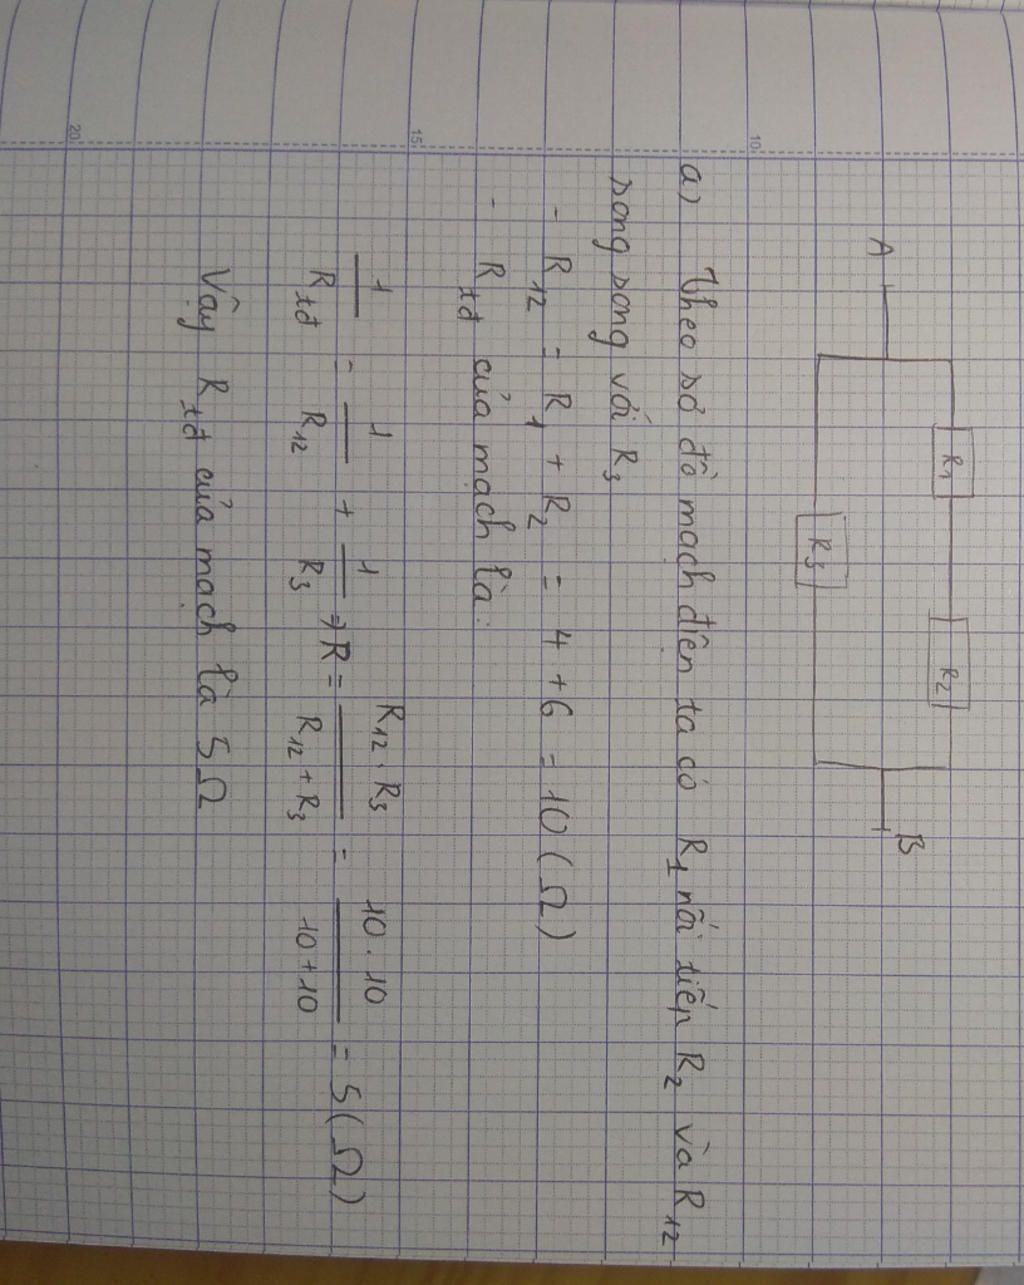 A
R1
R2
R3
B
10
a) Theo sơ đồ mạch điện ta có R1 nối tiếp R2 và R12
song song với R3
- R12 = R1 + R2 = 4 + 6 = 10 (Ω)
15
- Rtđ của mạch là:
1/Rtđ = 1/R12 + 1/R3 ⇒ R = R12 . R3 / R12 + R3 = 10 . 10 / 10 + 10 = 5 (Ω)
Vậy Rtđ của mạch là 5 Ω
20